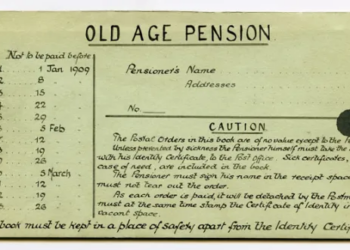 OLD AGE PENSION.
Not to be paid before
1 Jan 1909
8 "
15
22
29
5 Feb
12
19
26
5 March
12
19
26
Pensioner's Name
Addresses
No.
CAUTION.
The Postal Orders in this book are of no value except to the
Unless prevented by sickness the Pensioner himself must take the
with his Identity Certificate, to the Post Office Sick certificates,
case of need, are included in the book
The Pensioner must sign his name in the receipt space
must not tear out the order.
As each order is paid, it will be detached by the
must at the same time stamp the Certificate of Identity in
vacant space.
book must be kept in a place of safety apart from the Identity